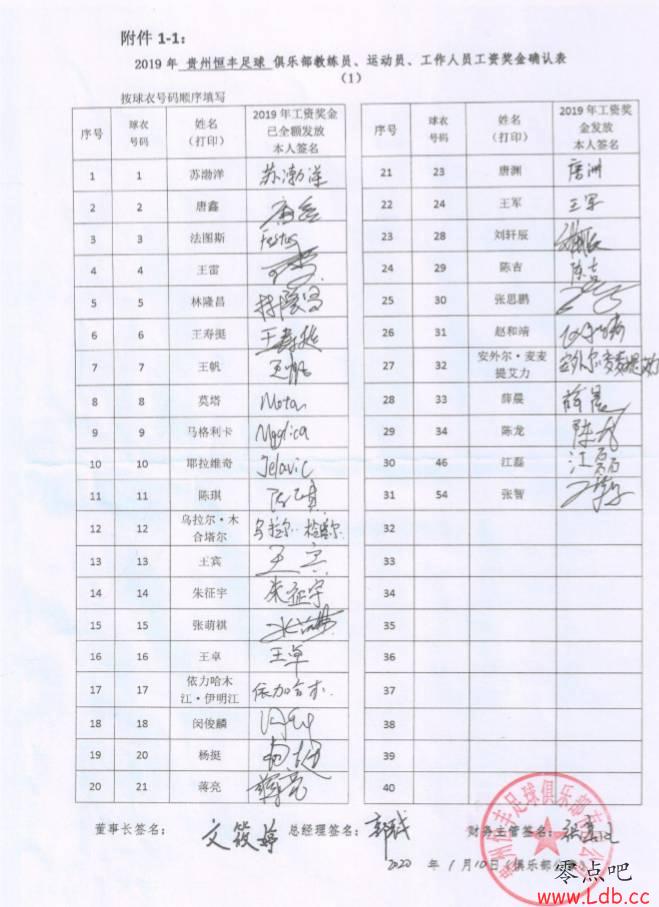 附件 1-1：
2019 年 贵州恒丰足球 俱乐部教练员、运动员、工作人员工资奖金确认表
（1）
按球衣号码顺序填写
序号 球衣号码 姓名（打印） 2019 年工资奖金已全额发放本人签名
1 1 苏渤洋 苏渤洋
2 2 唐鑫 唐鑫
3 3 法图斯 Festus
4 4 王雷
5 5 林隆昌 林隆昌
6 6 王寿挺 王寿挺
7 7 王帆 王帆
8 8 莫塔 Mota
9 9 马格利卡 Maglica
10 10 耶拉维奇 Jelavic
11 11 陈琪 陈琪
12 12 乌拉尔·木合塔尔
13 13 王宾 王宾
14 14 朱征宇 朱征宇
15 15 张萌祺
16 16 王卓 王卓
17 17 依力哈木江·伊明江
18 18 闵俊麟
19 20 杨挺
20 21 蒋亮 蒋亮
序号 球衣号码 姓名（打印） 2019 年工资奖金发放本人签名
21 23 唐渊
22 24 王军 王军
23 28 刘轩辰
24 29 陈吉 陈吉
25 30 张思鹏
26 31 赵和靖
27 32 安外尔·麦麦提艾力
28 33 薛晨 薛晨
29 34 陈龙 陈龙
30 46 江磊 江磊
31 54 张智
32
33
34
35
36
37
38
39
40
董事长签名： 文筱婷 总经理签名： 财务主管签名：
2020 年 1 月 10 日（俱乐部
贵州恒丰足球俱乐部有限公司
零点吧
www.Ldb.cc